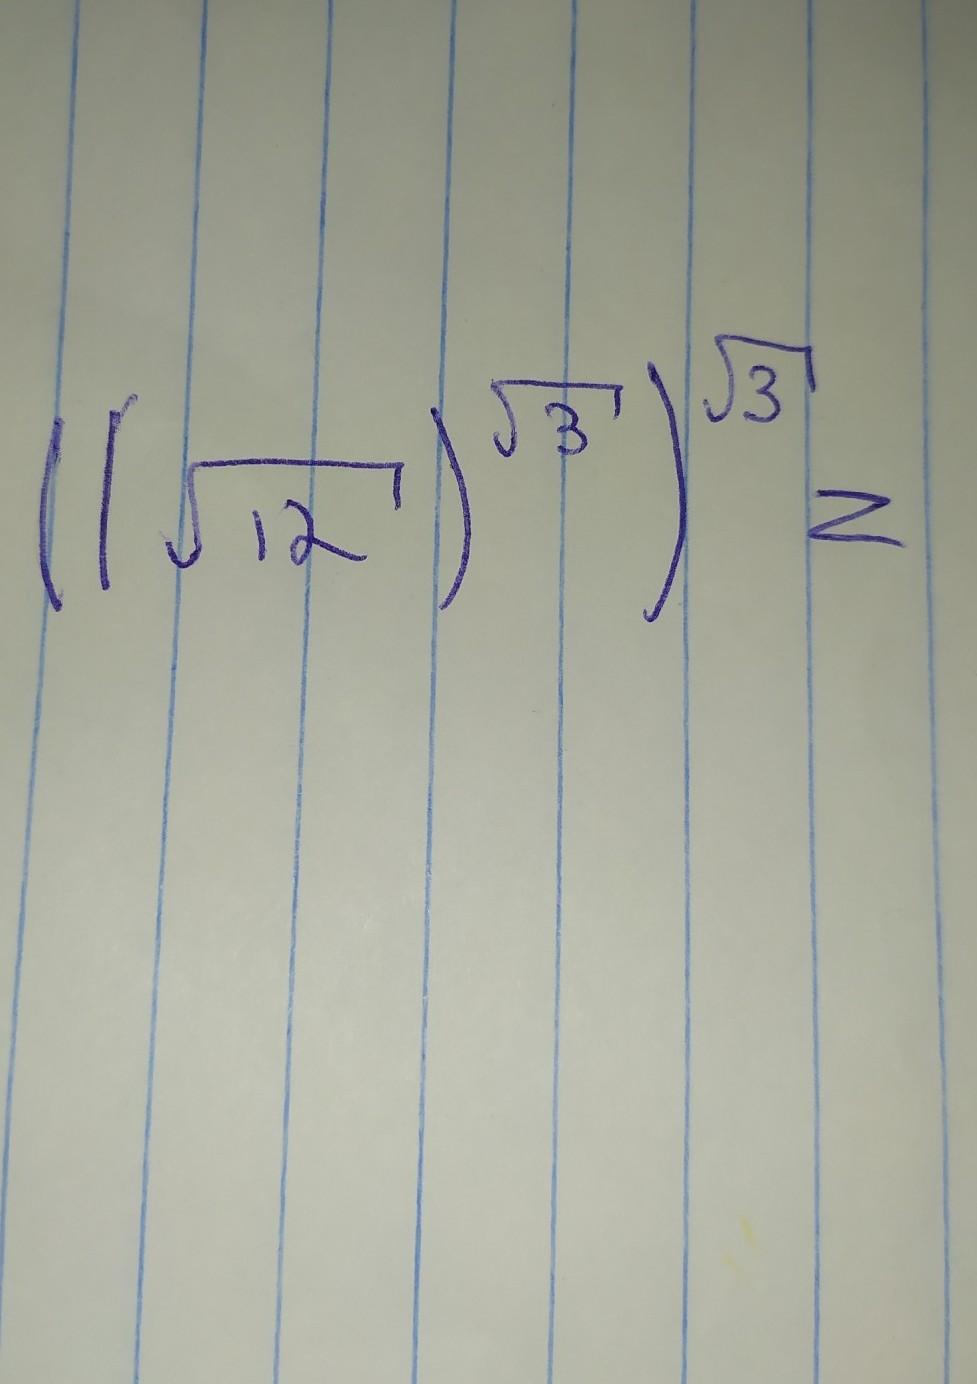 ((√12)^√3)^√3 =